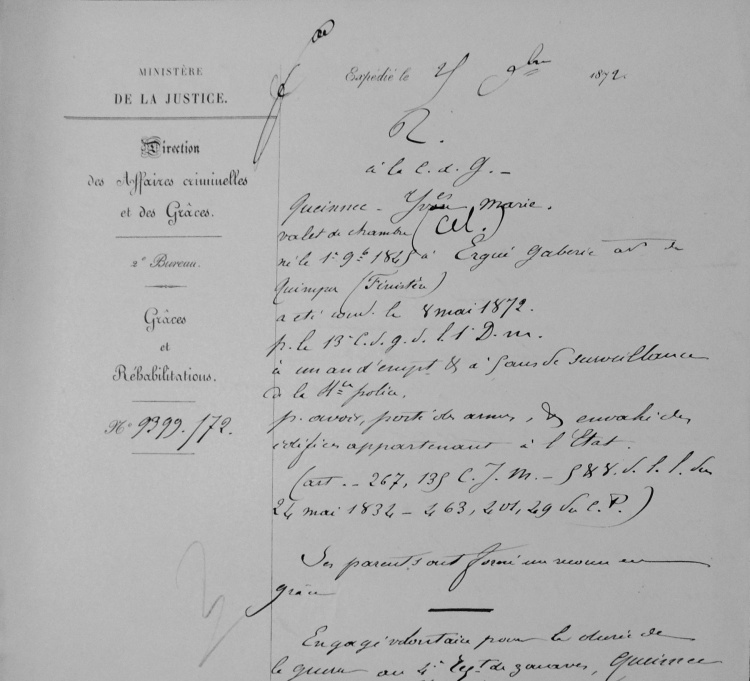 MINISTÈRE
DE LA JUSTICE.
Direction
des Affaires criminelles
et des Grâces.
2e Bureau.
Grâces
et
Réhabilitations.
No 9399./72.
Expédié le 9bre 1872.
R.
à la C. d. G. –
Queinnec – Yves Marie.
valet de chambre (cél.)
né le 1er 9b 1845 à Ergué Gaberic art de
Quimper (Finistère)
a été cond. le 8 mai 1872.
p. le 13e C. d. g. d. l. 1e D. m.
à un an d'empt & à 5 ans de surveillance
de la Hte police,
p. avoir, porté des armes, & envahi des
édifices appartenant à l'État.
(art. – 267, 135 C. J. M. – 5 & 8. d. l. l. du
24 mai 1834 – 463, 401, 49 du C. P.)
Ses parents ont formé un recours en
grâce
Engagé volontaire pour la durée de
la guerre au 4e régt de zouaves, Queinnec